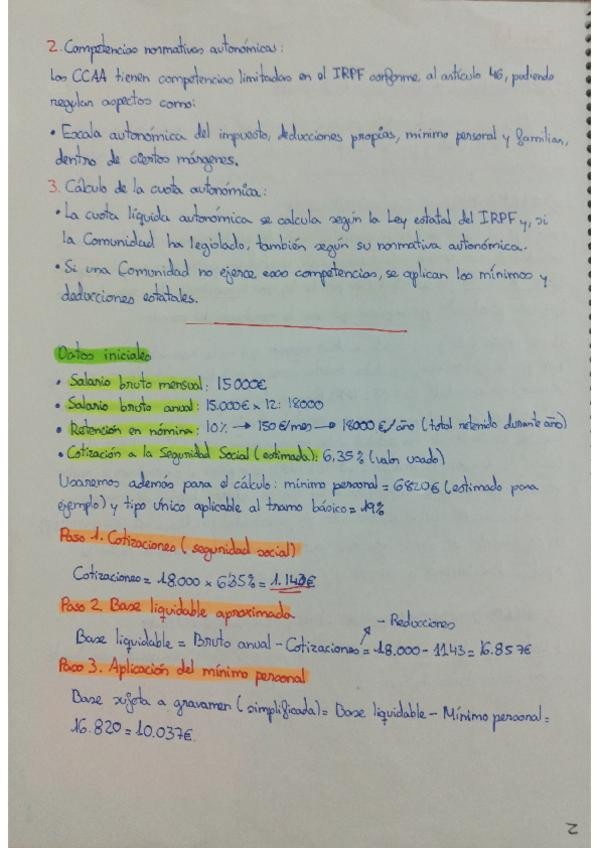 2. Competencias normativas autonómicas:
Las CCAA tienen competencias limitadas en el IRPF conforme al artículo 46, pudiendo
regular aspectos como:
• Escala autonómica del impuesto, deducciones propias, mínimo personal y familiar,
dentro de ciertos márgenes.
3. Cálculo de la cuota autonómica:
• La cuota líquida autonómica se calcula según la Ley estatal del IRPF y, si
la Comunidad ha legislado, también según su normativa autonómica.
• Si una Comunidad no ejerce esas competencias, se aplican los mínimos y
deducciones estatales.
Datos iniciales
• Salario bruto mensual: 15000€
• Salario bruto anual: 15.000€ x 12: 18000
• Retención en nómina: 10% → 150€/mes → 18000€/año (total retenido durante año)
• Cotización a la Seguridad Social (estimada): 6,35% (valor usado)
Usaremos además para el cálculo: mínimo personal = 6820€ (estimado para
ejemplo) y tipo único aplicable al tramo básico = 19%
Paso 1. Cotizaciones (seguridad social)
Cotizaciones = 18.000 x 6,35% = 1.143€
Paso 2. Base liquidable aproximada
- Reducciones
Base liquidable = Bruto anual - Cotizaciones = 18.000 - 1143 = 16.857€
Paso 3. Aplicación del mínimo personal
Base sujeta a gravamen (simplificada) = Base liquidable - Mínimo personal =
16.820 = 10.037€.
2